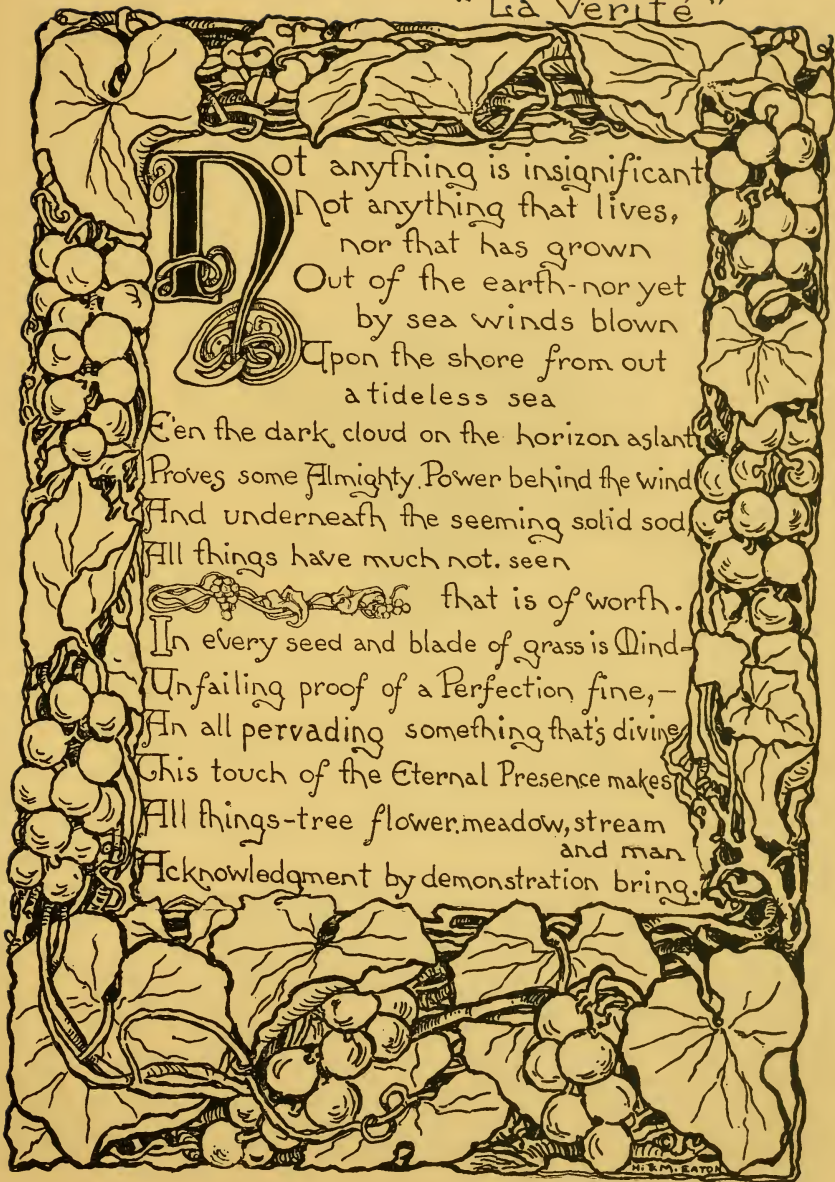 "La Verité"
Not anything is insignificant
Not anything that lives,
nor that has grown
Out of the earth-nor yet
by sea winds blown
Upon the shore from out
a tideless sea
E'en the dark cloud on the horizon aslant
Proves some Almighty Power behind the wind
And underneath the seeming solid sod,
All things have much not. seen
that is of worth.
In every seed and blade of grass is Mind-
Unfailing proof of a Perfection fine,-
An all pervading something that's divine
This touch of the Eternal Presence makes
All things-tree flower. meadow, stream
and man
Acknowledgment by demonstration bring.
H. & M. EATON